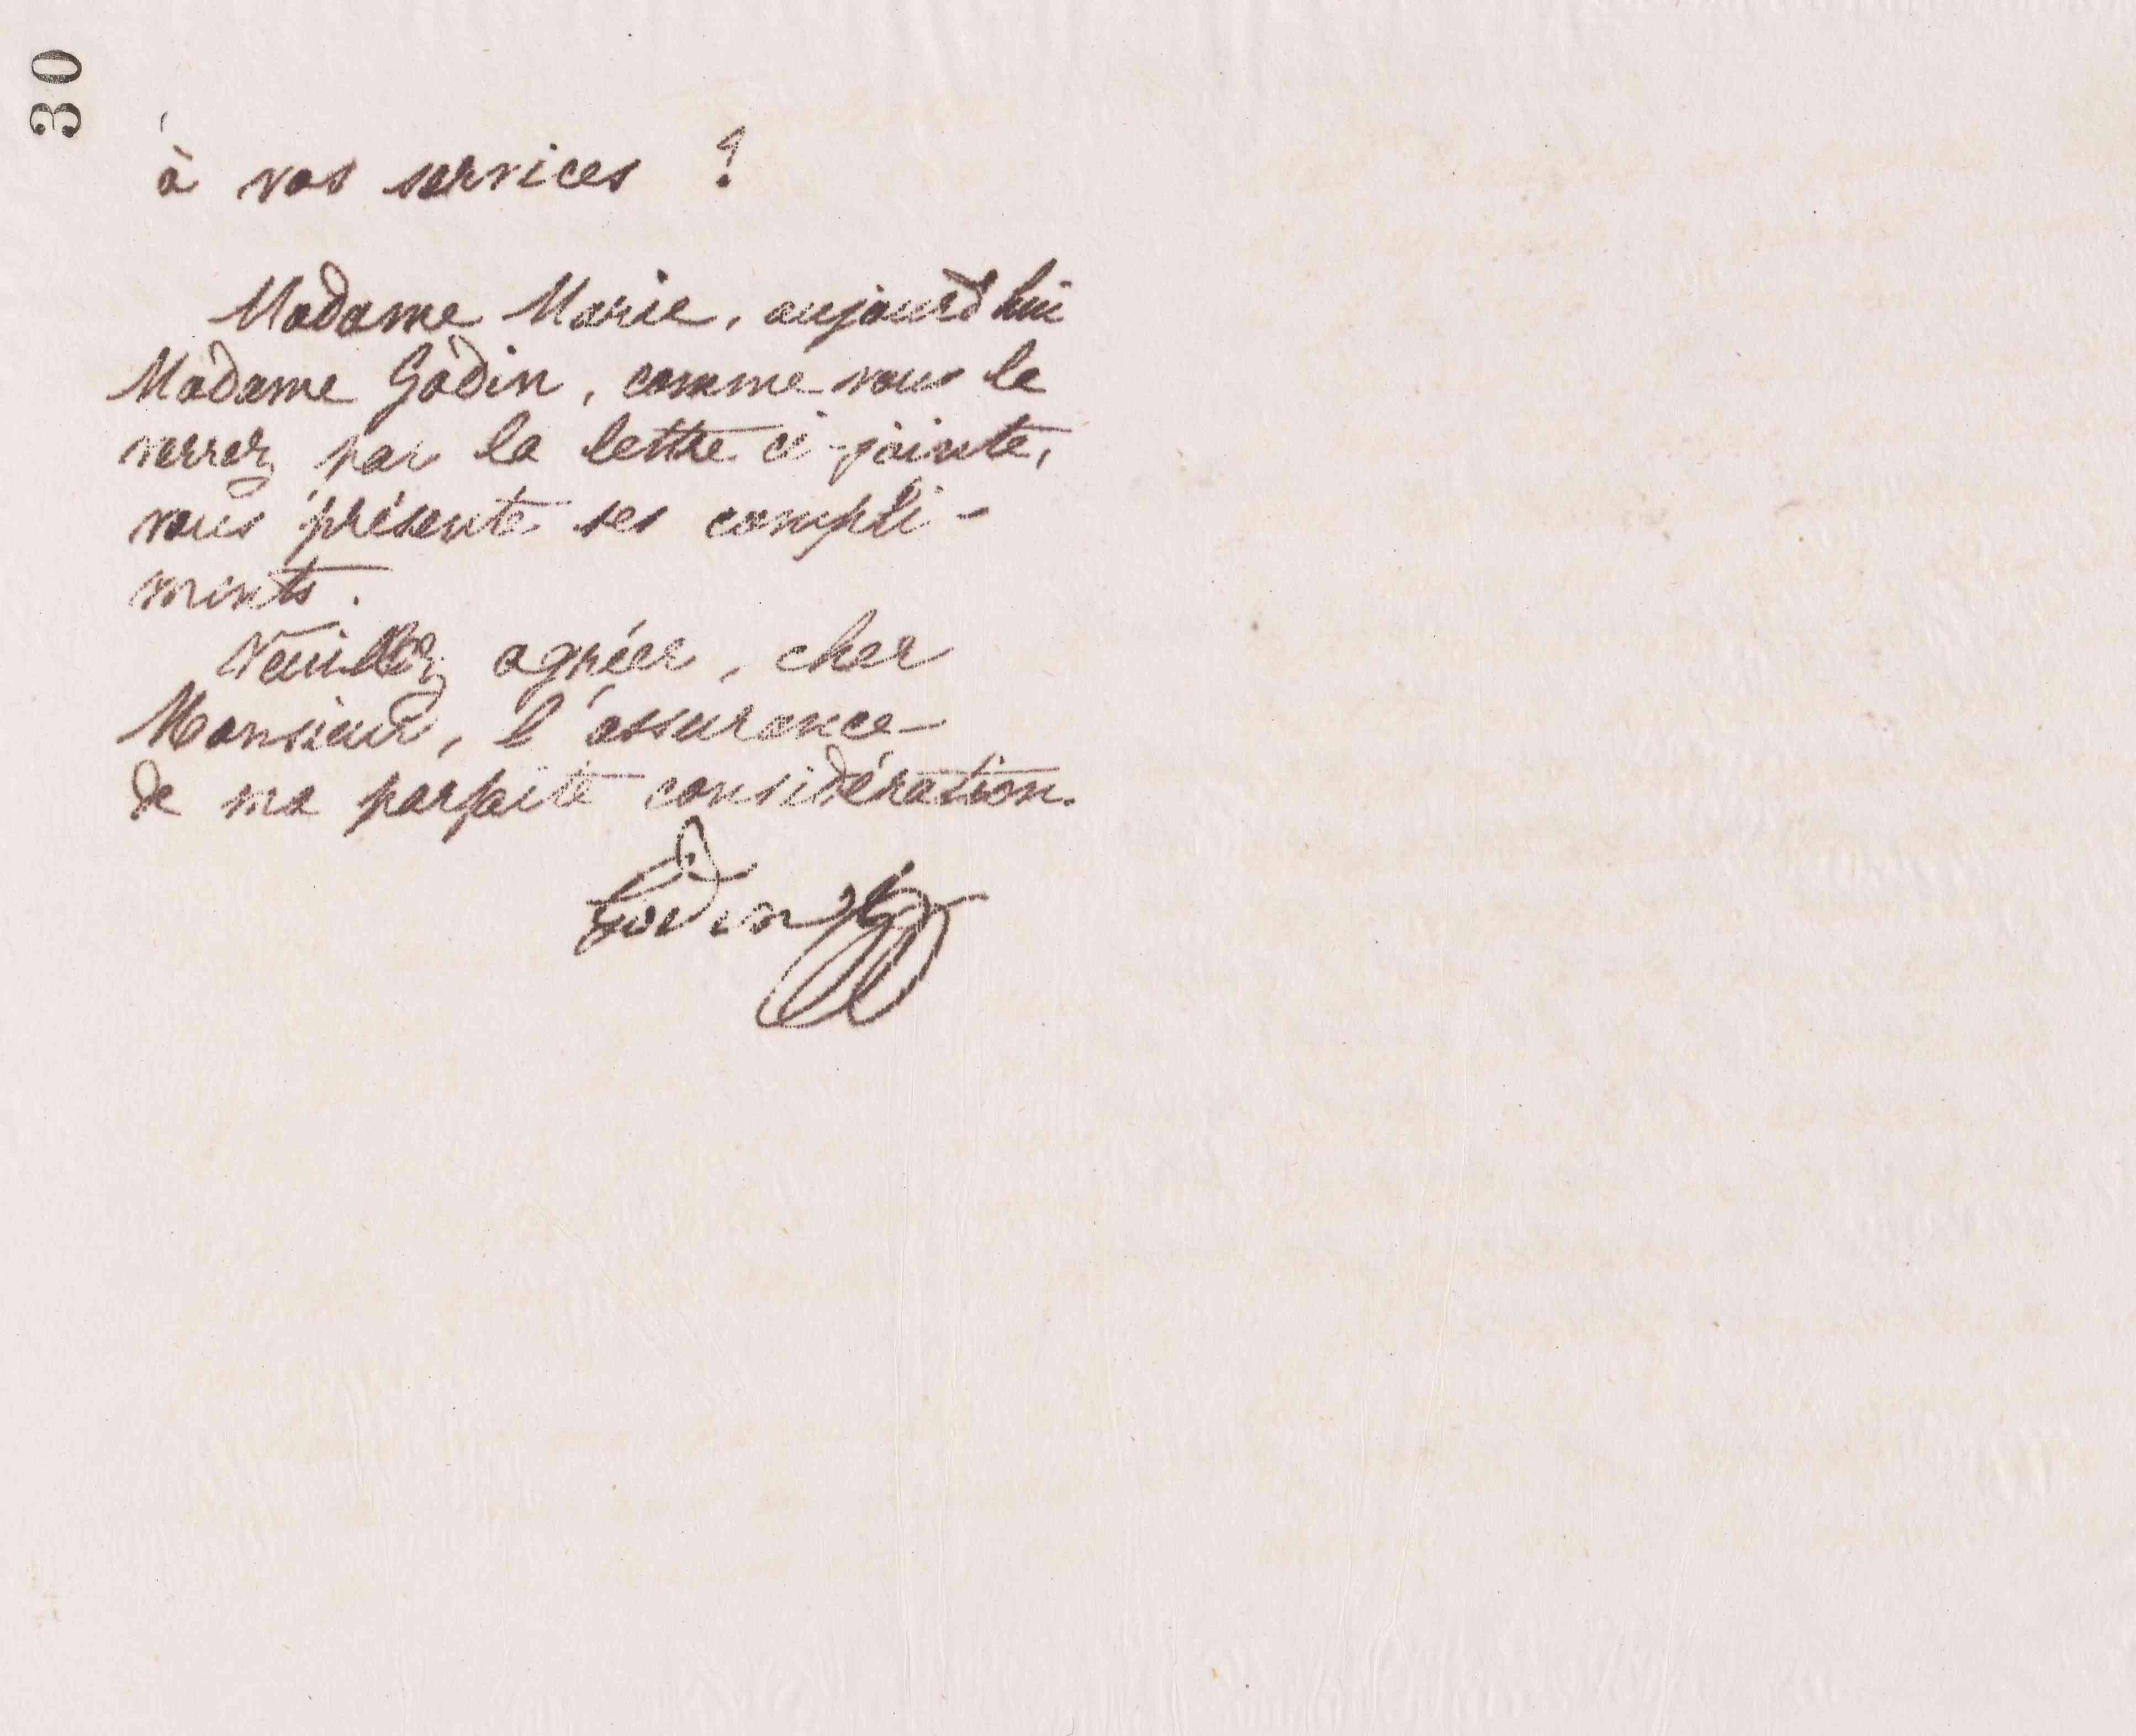 30
à vos services ?
Madame Marie, aujourd'hui
Madame Godin, comme vous le
verrez par la lettre ci-jointe,
vous présente ses compli-
ments.
Veuillez agréer, cher
Monsieur, l'assurance
de ma parfaite considération.
Godin